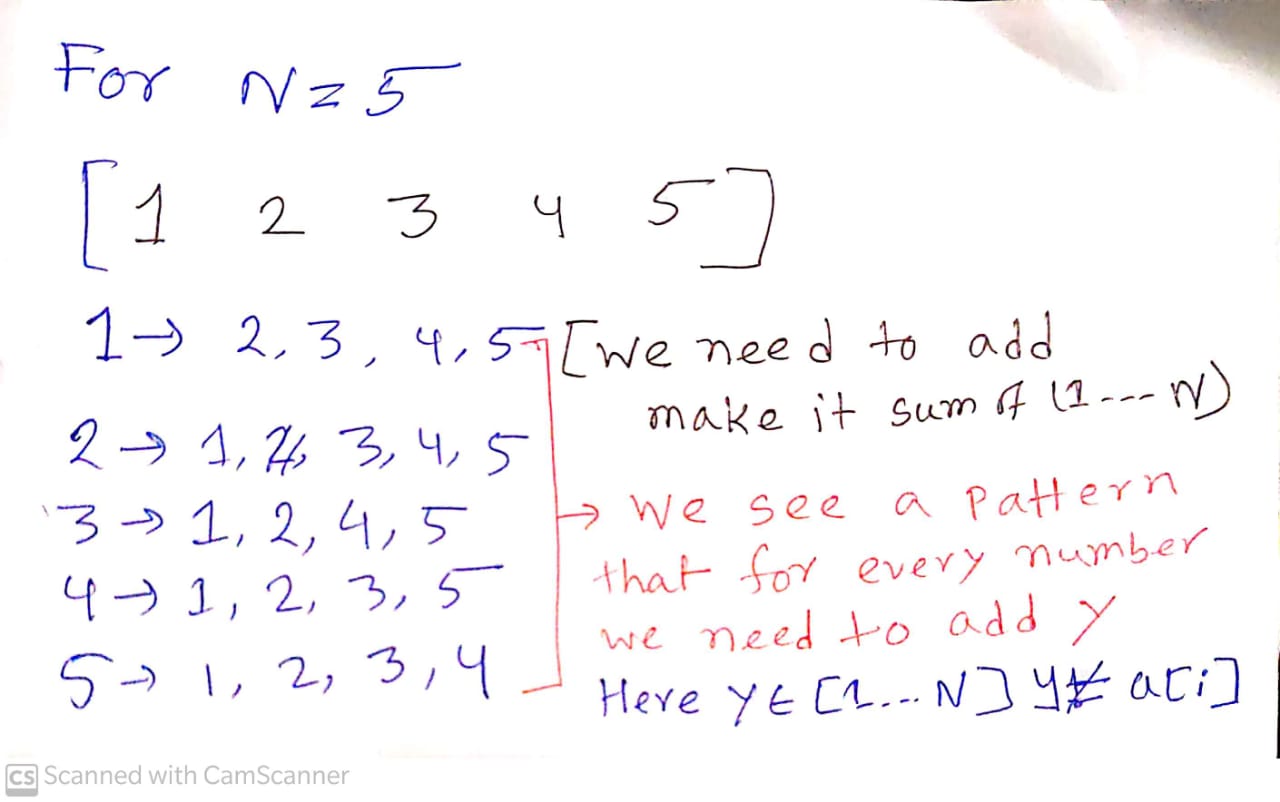 For N = 5
[1 2 3 4 5]
1 → 2, 3, 4, 5 [we need to add
make it sum of (1--- N)
2 → 1, 3, 4, 5
3 → 1, 2, 4, 5
→ We see a pattern
that for every number
4 → 1, 2, 3, 5
we need to add y
5 → 1, 2, 3, 4
Here y ∈ [1... N] y ≠ a[i]
CS Scanned with CamScanner